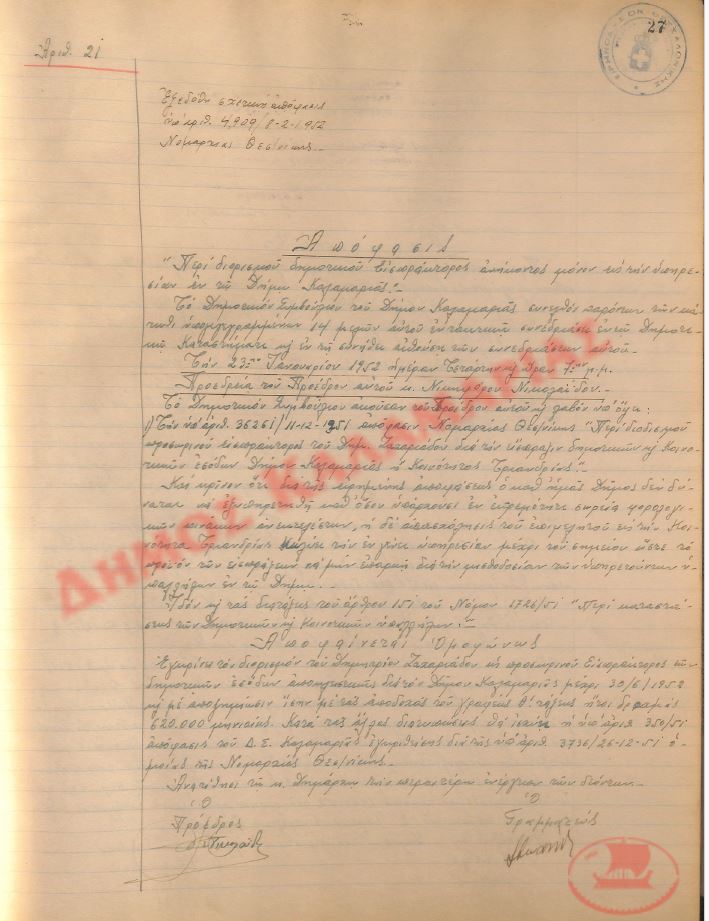 27
Ἀριθ. 21
Ἐξεδόθη σχετικὴ ἀπόφασις
ὑπ' ἀριθ. 4909/8-2-1952
Νομαρχίας Θεσ/νίκης.
Ἀπόφασις
"Περὶ διορισμοῦ δημοτικοῦ Εἰσπράκτορος ἀνήκοντος μόνον εἰς τὴν ὑπηρε-
σίαν ἐν τῷ Δήμῳ Καλαμαριᾶς."
Τὸ Δημοτικὸν Συμβούλιον τοῦ Δήμου Καλαμαριᾶς συνελθὸν παρόντων τῶν κά-
τωθι ὑπογεγραμμένων 14 μελῶν αὐτοῦ ἐν τακτικῇ συνεδριάσει ἐν τῷ Δημοτι-
κῷ Καταστήματι κ ἐν τῇ συνήθει αἰθούσῃ τῶν συνεδριάσεων αὐτοῦ.
Τὴν 23ην Ἰανουαρίου 1952 ἡμέραν Τετάρτην κ ὥραν 7ην μ.μ.
Προεδρείᾳ τοῦ Προέδρου αὐτοῦ κ. Νικηφόρου Νικολαΐδου.
Τὸ Δημοτικὸν Συμβούλιον ἀκοῦσαν τοῦ Προέδρου αὐτοῦ κ λαβὸν ὑπ' ὄψει:
1) Τὴν ὑπ' ἀριθ. 36261/11-12-1951 ἀπόφασιν Νομαρχίας Θεσ/νίκης "Περὶ διορισμοῦ
προσωρινοῦ εἰσπράκτορος τοῦ Δημ. Ζαχαριάδου διὰ τὴν εἴσπραξιν δημοτικῶν κ Κοινο-
τικῶν ἐσόδων Δήμου Καλαμαριᾶς κ Κοινότητος Τριανδρίας."
Καὶ κρῖνον ὅτι διὰ τῆς εἰρημένης ἀποφάσεως ὁ καθ' ἡμᾶς Δῆμος δὲν δύ-
ναται νὰ ἐξυπηρετηθῇ καθ' ὅσον ὑπάρχουσι ἐν ἐκκρεμότητι σωρεία φορολογι-
κῶν πινάκων ἀνεκτελέστων, ἡ δὲ ἀπασχόλησις τοῦ ἐπιμελητοῦ εἰς τὴν Κοι-
νότητα Τριανδρίας κωλύει τὴν ἐν γένει ὑπηρεσίαν μέχρι τοῦ σημείου ὥστε τὸ
προϊὸν τῶν εἰσπράξεων νὰ μὴν ἐπαρκῇ διὰ τὴν μισθοδοσίαν τῶν ὑπηρετούντων ὑ-
παλλήλων ἐν τῷ Δήμῳ.
Ἰδὸν κ τὰς διατάξεις τοῦ ἄρθρου 151 τοῦ Νόμου 1726/51 "Περὶ καταστά-
σεως τῶν Δημοτικῶν κ Κοινοτικῶν ὑπαλλήλων."
Ἀποφαίνεται Ὁμοφώνως
Ἐγκρίνει τὸν διορισμὸν τοῦ Δημητρίου Ζαχαριάδου ὡς προσωρινοῦ Εἰσπράκτορος τῶν
δημοτικῶν ἐσόδων ἀποκλειστικῶς διὰ τὸν Δῆμον Καλαμαριᾶς μέχρι 30/6/1952
κ μὲ ἀποζημίωσιν ἴσην μὲ τὰς ἀποδοχὰς τοῦ γραφέως Β' τάξεως ἤτοι δραχμὰς
620.000 μηνιαίως. Κατὰ τὰς ἄλλας διατυπώσεις ἡ ὑπ' ἀριθ. 350/51
ἀπόφασις τοῦ Δ.Σ. Καλαμαριᾶς ἐγκριθείσης διὰ τῆς ὑπ' ἀριθ. 3736/26-12-51 ὁ-
μοίας τῆς Νομαρχίας Θεσ/νίκης.
Ἀνατίθησι τῷ κ. Δημάρχῳ τὴν περαιτέρω ἐνέργειαν τῶν δεόντων.
Ὁ Ὁ
Πρόεδρος Γραμματεύς
ΔΗΜΟΣ ΚΑΛΑΜΑΡΙΑΣ